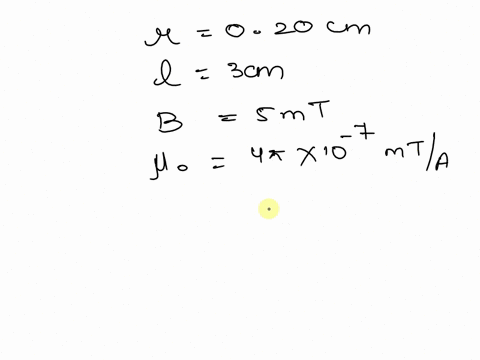 r = 0.20 cm
l = 3cm
B = 5mT
μ₀ = 4π × 10⁻⁷ mT/A